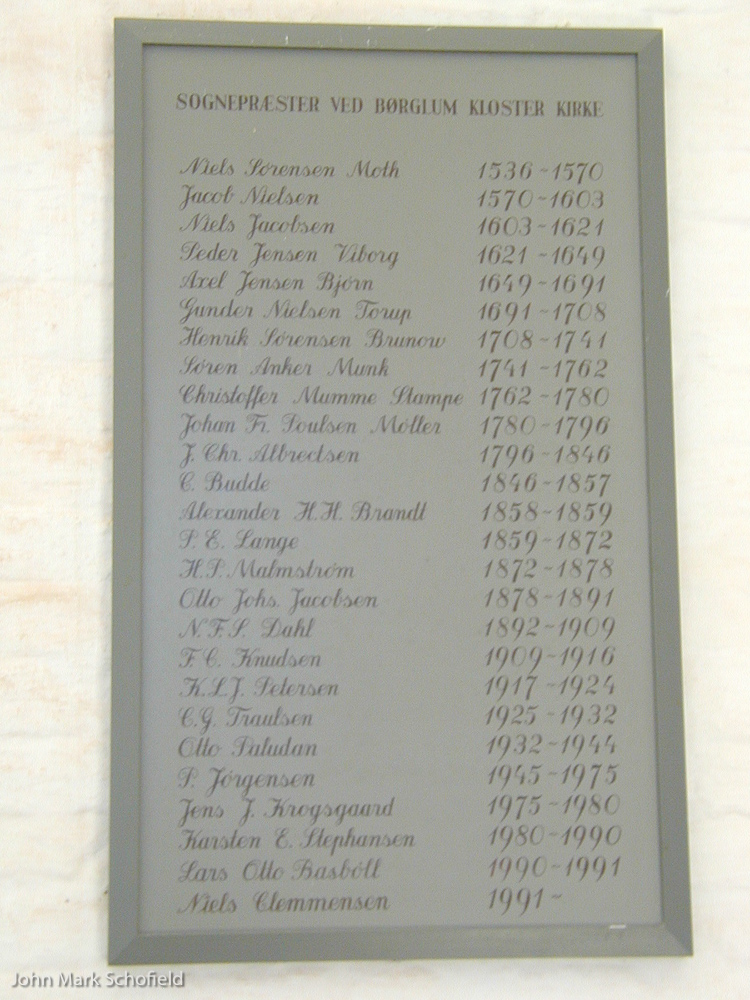 SOGNEPRÆSTER VED BØRGLUM KLOSTER KIRKE
Niels Sørensen Moth 1536-1570
Jacob Nielsen 1570-1603
Niels Jacobsen 1603-1621
Peder Jensen Viborg 1621-1649
Axel Jensen Bjørn 1649-1691
Gunder Nielsen Torup 1691-1708
Henrik Sørensen Brunow 1708-1741
Søren Anker Munk 1741-1762
Christoffer Mumme Stampe 1762-1780
Johan Fr. Poulsen Møller 1780-1796
J. Chr. Albrectsen 1796-1846
C. Budde 1846-1857
Alexander H.H. Brandt 1858-1859
P. E. Lange 1859-1872
H.P. Malmstrøm 1872-1878
Otto Johs. Jacobsen 1878-1891
N.F.S. Dahl 1892-1909
F.C. Knudsen 1909-1916
K.L.J. Petersen 1917-1924
C.G. Traulsen 1925-1932
Otto Paludan 1932-1944
P. Jörgensen 1945-1975
Jens J. Krogsgaard 1975-1980
Karsten E. Stephansen 1980-1990
Lars Otto Basböll 1990-1991
Niels Clemmensen 1991-
John Mark Schofield